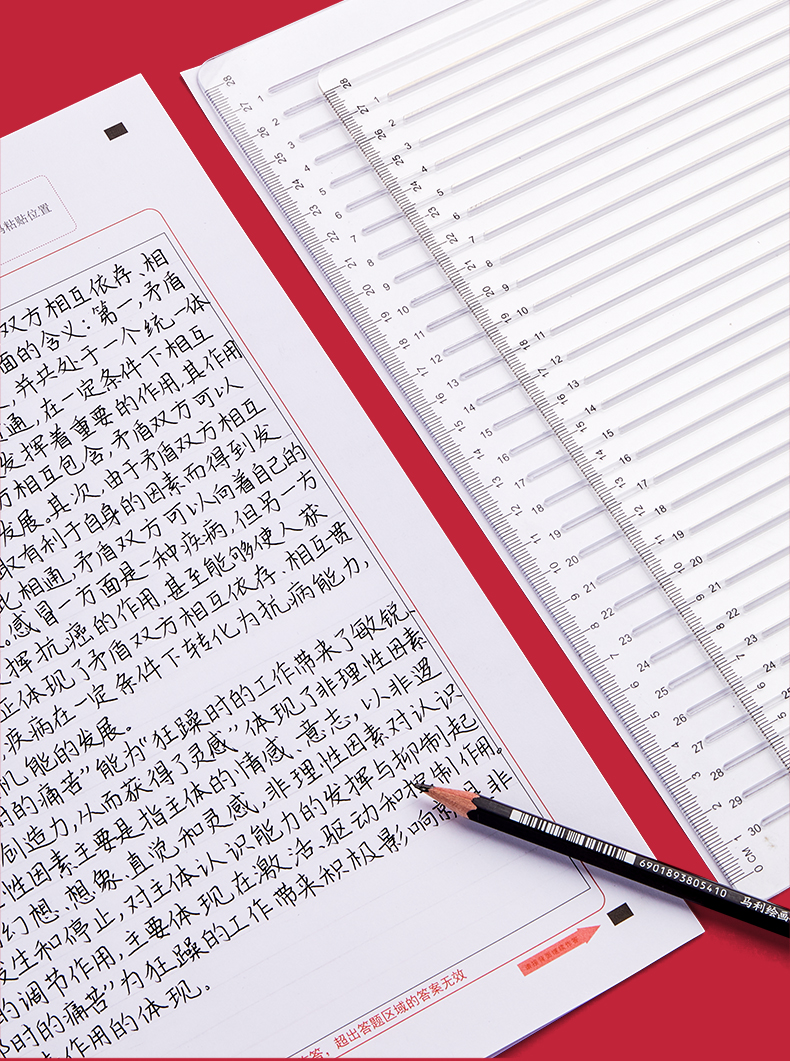 粘贴位置
双方相互依存、相
面的含义：第一，矛盾
，并共处于一个统一体
通，在一定条件下相互
发挥着重要的作用，其作用
方相互包含，矛盾双方可以
发展。其次，由于矛盾双方相互
取有利于自身的因素而得到发
此相通，矛盾双方可以向着自己的
。感冒一方面是一种疾病，但另一方
挥抗癌的作用，甚至能够使人获
正体现了矛盾双方相互依存、相互贯
疾病在一定条件下转化为抗病能力，
机能的发展。
时的痛苦”能为“狂躁时的工作带来了敏锐、
创造力，从而获得了灵感”体现了非理性因素
性因素主要是指主体的情感、意志，以非逻
幻想、想象、直觉和灵感，非理性因素对认识
发生和停止，对主体认识能力的发挥与抑制起
的调节作用，主要体现在激活、驱动和控制作用。
时的痛苦”为狂躁的工作带来积极影响
作用的体现。
作答，超出答题区域的答案无效
6901893805410 马利绘画
28 27 26 25 24 23 22 21 20 19 18 17 16 15 14 13 12 11 10 9 8 7 6 5 4 3 2 1 0 CM
1 2 3 4 5 6 7 8 9 10 11 12 13 14 15 16 17 18 19 20 21 22 23 24 25 26 27 28 29 30
28 27 26 25 24 23 22 21 20 19 18 17 16 15 14 13 12 11 10 9 8 7 6 5 4
1 2 3 4 5 6 7 8 9 10 11 12 13 14 15 16 17 18 19 20 21 22 23 24 25